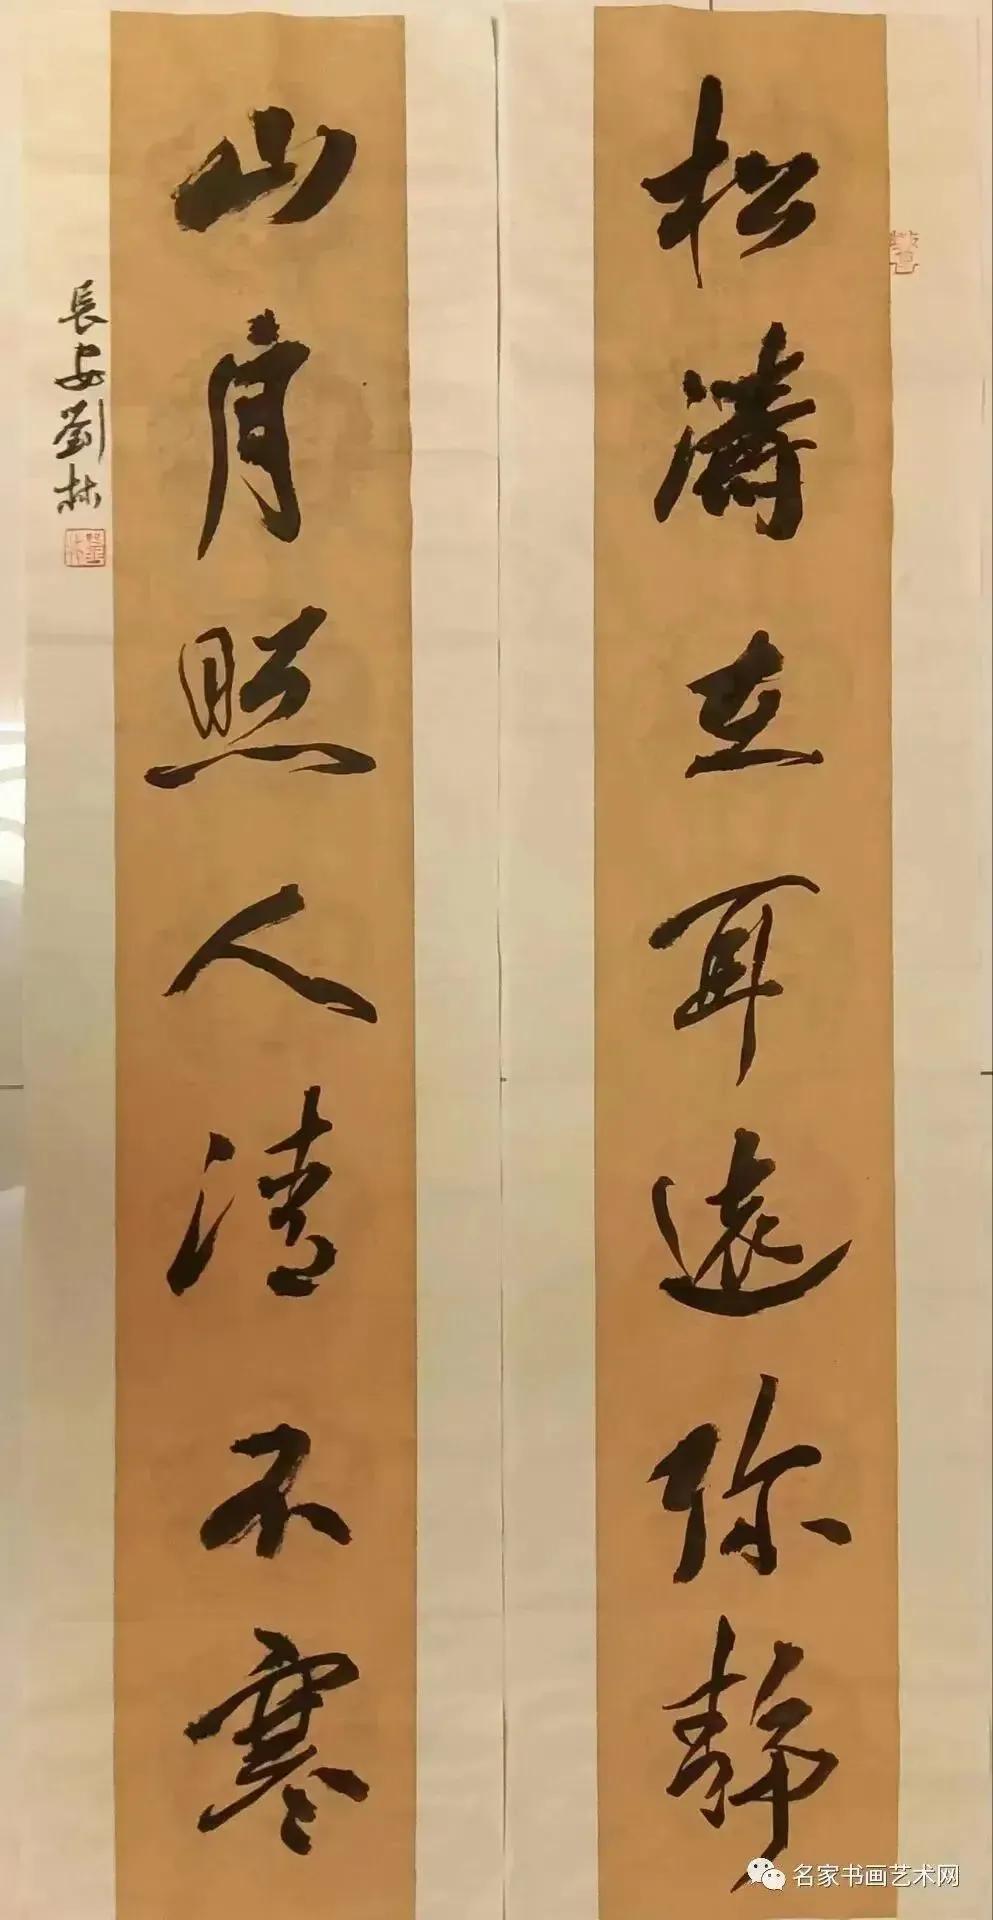 松濤在耳遠弥静
山月照人清不寒
長安劉林
名家书画艺术网